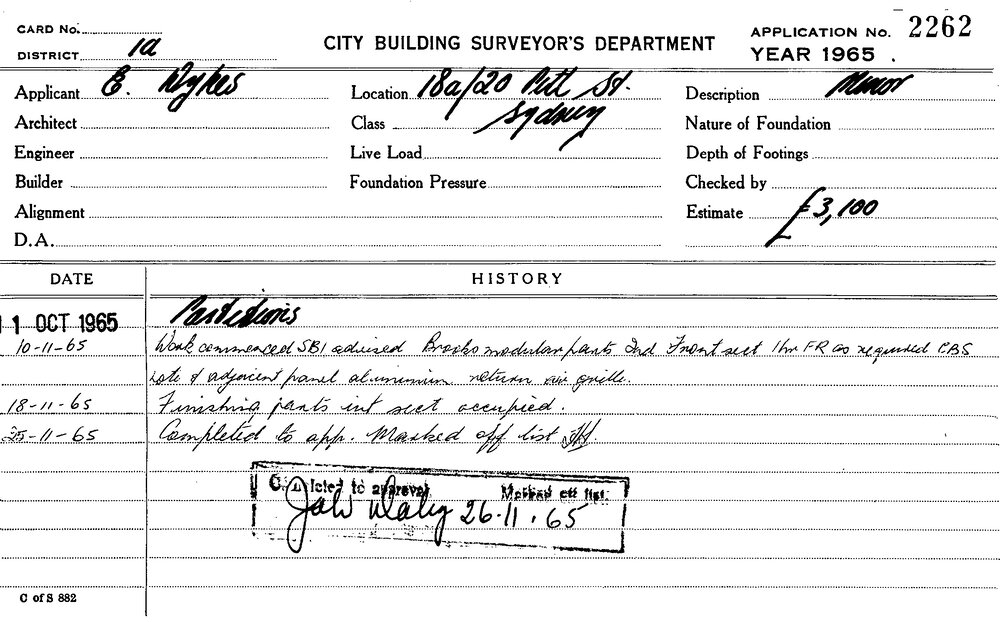 CARD No.
DISTRICT 1a
CITY BUILDING SURVEYOR'S DEPARTMENT
APPLICATION No. 2262
YEAR 1965 .
Applicant E. Dykes
Location 18a/20 Pitt St. Sydney
Description Minor
Architect
Class
Nature of Foundation
Engineer
Live Load
Depth of Footings
Builder
Foundation Pressure
Checked by
Alignment
Estimate £3,100
D.A.
DATE HISTORY
11 OCT 1965 Partitions
10-11-65 Work commenced SBI advised Brooks modular parts 2nd Front sect 1hr FR as required CBS
adjacent panel aluminium return air grille.
18-11-65 Finishing parts int sect occupied.
25-11-65 Completed to app. Marked off list
to approval Marked off list.
26.11.65
C of S 882